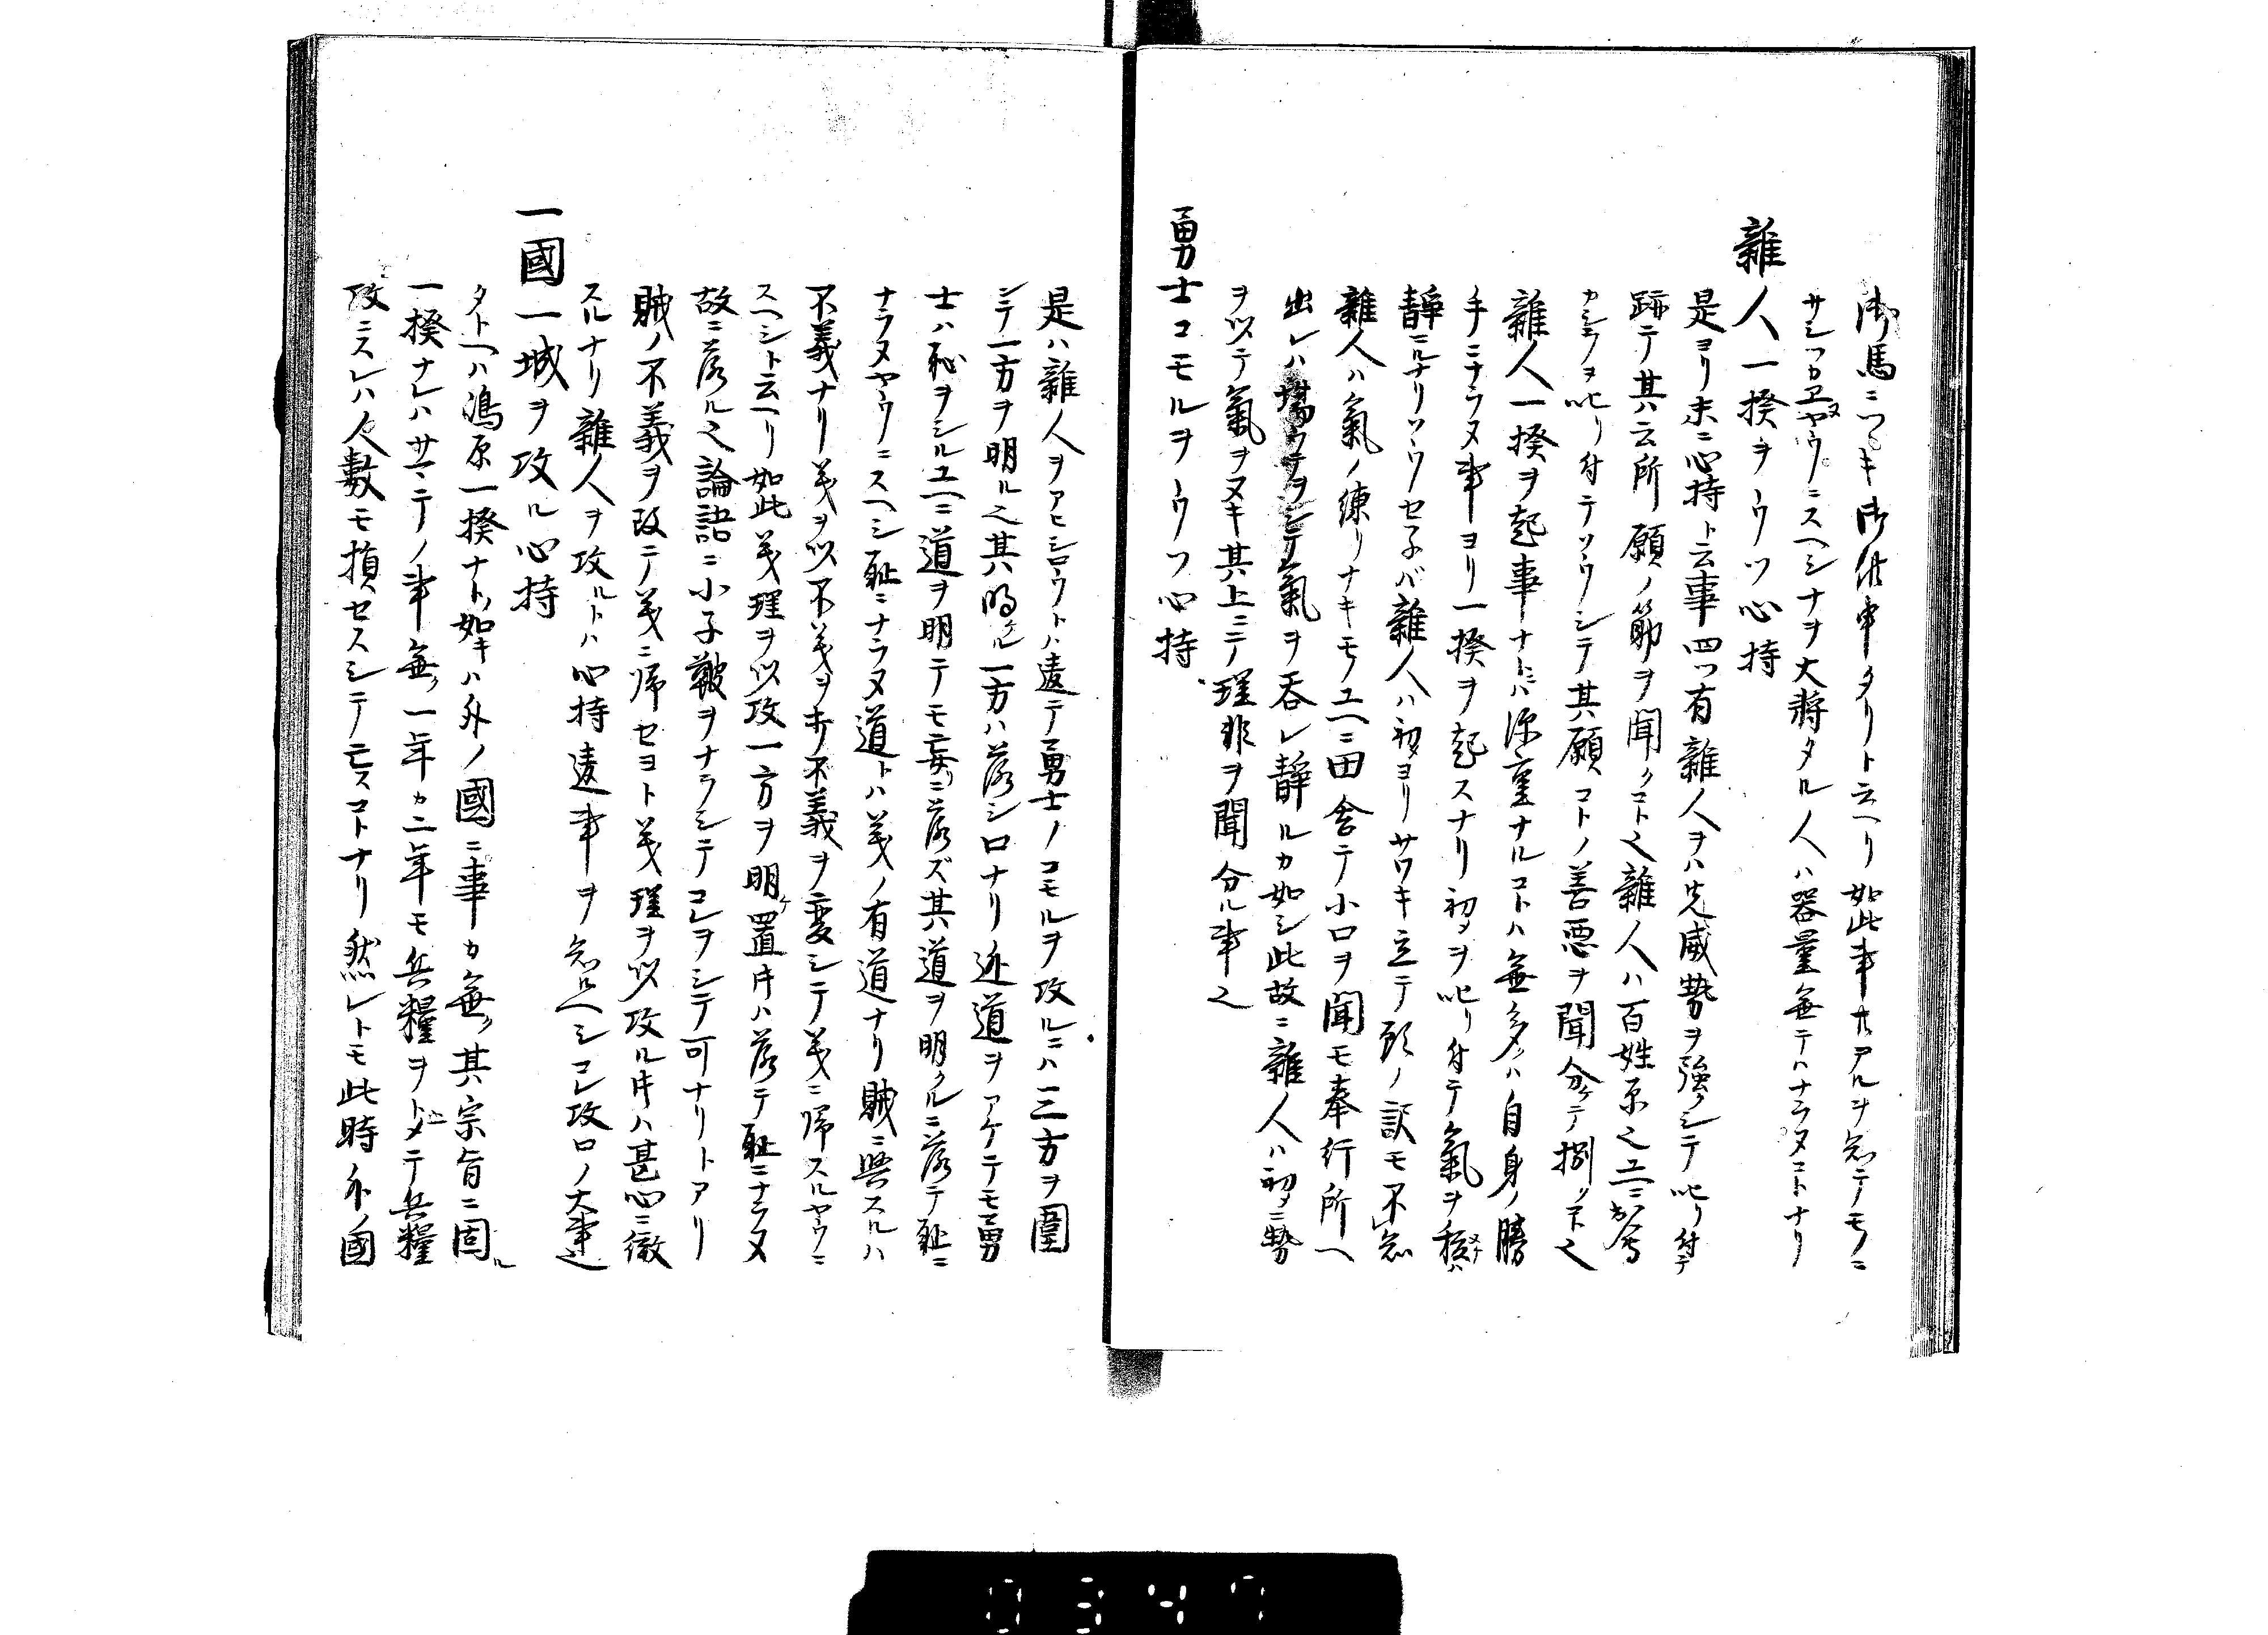 御馬ニツキ御供申タリト云ヘリ如此事共アルヲ忘テノモノニ
サシツカヱヌヤウニスヘシナヲ大将タル人ハ器量無テハナラヌコトナリ
雑人一揆ヲウツ心持
是ヨリ末ニ心持ト云事四ツ有雑人ヲハ先威勢ヲ強クシテ叱リ付テ
跡テ其云所願ノ筋ヲ聞クコト也雑人ハ百姓原之ユヘニ
カシラヲ叱リ付テソウシテ其願コトノ善悪ヲ聞分ケテ捌クコト也
雑人一揆ヲ起事ナトニハ深重ナルコトハ無多クハ自身ノ勝
手ニナラヌ事ヨリ一揆ヲ起スナリ初メヲ叱リ付テ氣ヲ
静ニルナリソウセ子バ雑人ハ初メヨリサワキ立テ頭ノ訳モ不知
雑人ハ氣ノ練リナキモノユヘニ田舎テ小口ヲ聞モ奉行所ヘ
出レハ場ウテヲシテ氣ヲ呑レ静ルカ如シ此故ニ雑人ハ初メニ勢
ヲ以テ氣ヲヌキ其上ニテ理非ヲ聞分ル事也
勇士コモルヲウツ心持
是ハ雑人ヲアヒシロウトハ違テ勇士ノコモルヲ攻ルニハ三方ヲ圍
シテ一方ヲ明ル也其明ケル一方ハ落シロナリ逃道ヲアケテモ勇
士ハ恥ヲシルユヘニ道ヲ明テモ妄ニ落ズ其道ヲ明クルニ落テ恥ニ
ナラヌヤウニスヘシ恥ニナラヌ道トハ義ノ有道ナリ賊ニ與スルハ
不義ナリ義ヲ以不義ヲ討不義ヲ変シテ義ニ帰スルヤウニ
スヘシト云ヘリ如此義理ヲ以攻一方ヲ明ケ置牛ハ落テ恥ニナラヌ
故ニ落ル也論語ニ小子皷ヲナラシテコレヲシテ可ナリトアリ
賊ノ不義ヲ攻ニテ義ニ帰セヨト義理ヲ以攻ル片ハ甚心ニ徹
スルナリ雑人ヲ攻ルトハ心持違事ヲ知ルヘシコレ攻口ノ大事也
一國一城ヲ攻ル心持
タトヘハ嶋原一揆ナトノ如キハ外ノ國ニ事カ無ク其宗旨ニ固ル
一揆ナレハサマテノ事無ク一年カ二年モ兵糧ヲトメテ兵糧
攻ニスレハ人数モ損セスシテ亡スコトナリ然レトモ此時外ノ國